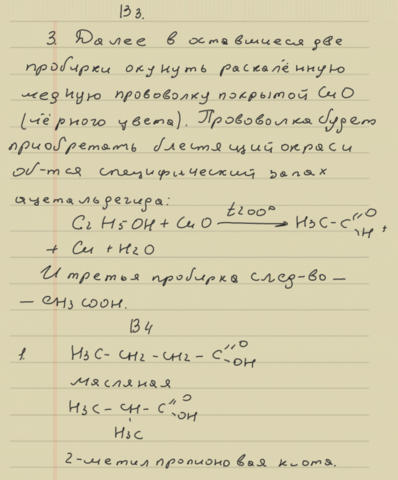 В 3.
3. Далее в оставшиеся две
пробирки окунуть раскалённую
медную прововолку покрытой CuO
(чёрного цвета). Прововолка будет
приобретать блестящий окрас и
об-тся специфический запах
ацетальдегида:
C2H5OH + CuO t200° → H3C-C=O-H +
+ Cu + H2O
И третья пробирка след-во -
- CH3COOH.
В4
1. H3C-CH2-CH2-C=O-OH
масляная
H3C-CH-C=O-OH
H3C
2-метилпропионовая к-ота.